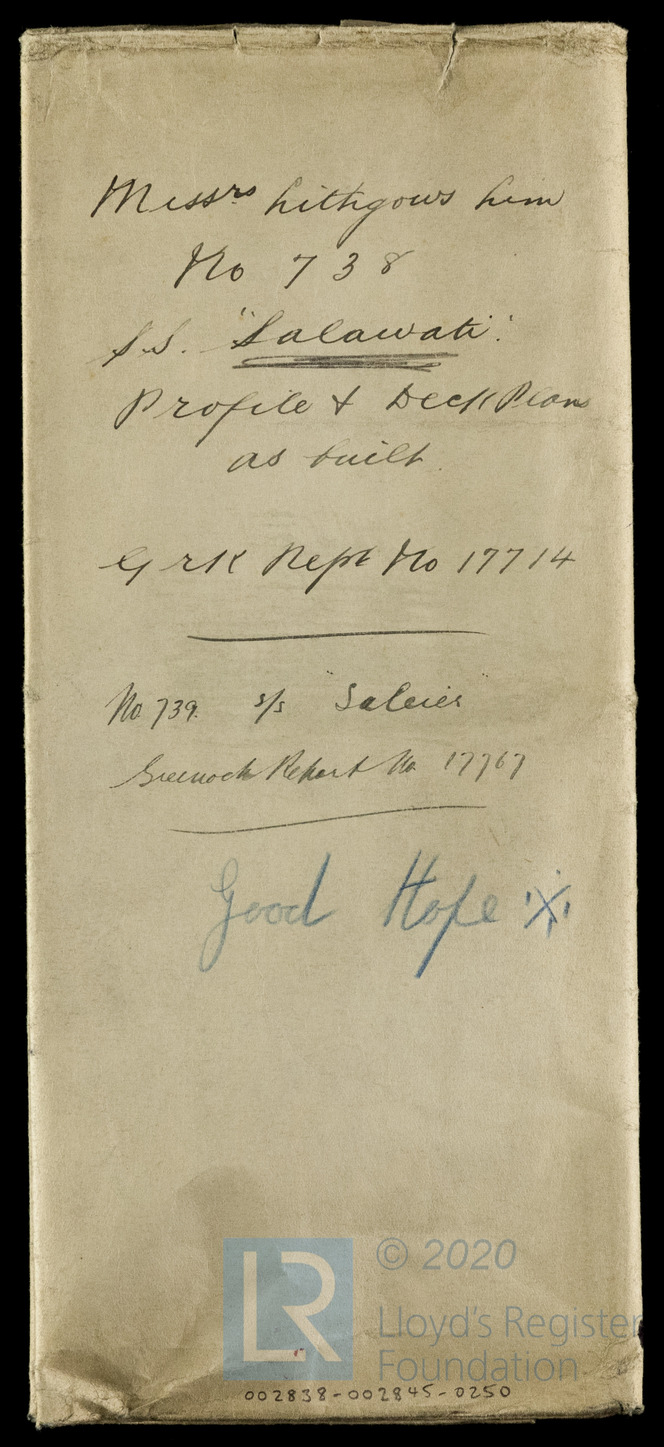 Messrs Lithgows Lim
No 738
S.S. "Salawati".
Profile & Deck Plans
as built.
Grk Rept No 17714
No. 739. s/s "Saleier"
Greenock Report No 17767
Good Hope
LR © 2020
Lloyd's Register
Foundation
002838-002845-0250